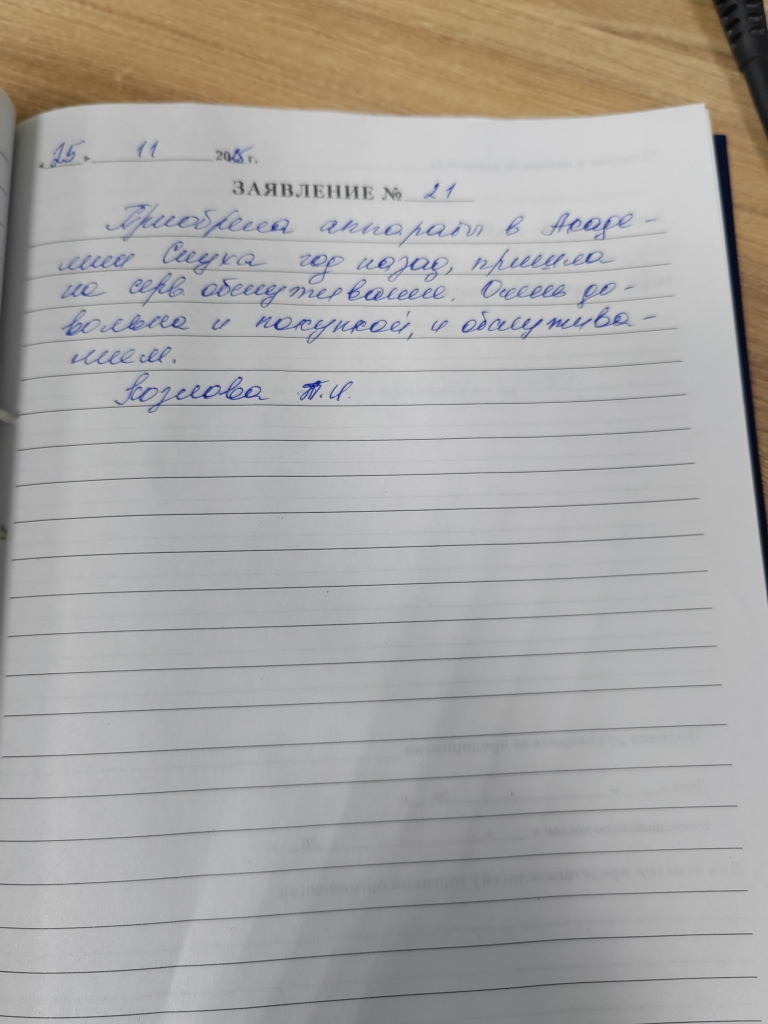 «25» 11 2025 г.
ЗАЯВЛЕНИЕ № 21
Приобрела аппараты в Акаде-
мии Слуха год назад, пришла
на серв. обслуживание. Очень до-
вольна и покупкой, и обслужива-
нием.
Козлова Т.И.